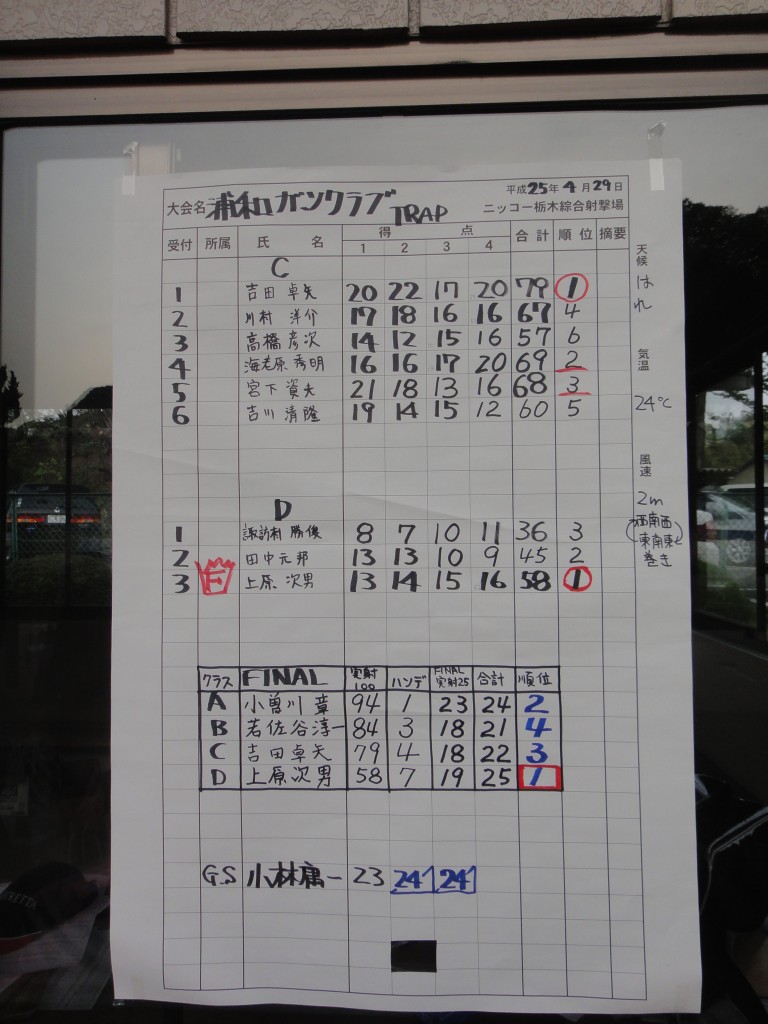 平成25年4月29日
大会名 浦和ガンクラブ TRAP ニッコー栃木綜合射撃場
受付 所属 氏名 得点 1 2 3 4 合計 順位 摘要
C
1 吉田 卓矢 20 22 17 20 79 1
2 川村 洋介 17 18 16 16 67 4
3 高橋 彦次 14 12 15 16 57 6
4 海老原 秀明 16 16 17 20 69 2
5 宮下 資夫 21 18 13 16 68 3
6 吉川 清隆 19 14 15 12 60 5
D
1 諏訪 勝俊 8 7 10 11 36 3
2 田中元邦 13 13 10 9 45 2
3 F 上原 次男 13 14 15 16 58 1
クラス FINAL 実射100 ハンデ FINAL実射25 合計 順位
A 小曽川 章 94 1 23 24 2
B 若佐谷淳一 84 3 18 21 4
C 吉田卓矢 79 4 18 22 3
D 上原次男 58 7 19 25 1
G.S 小林庸一 23 24 24
天候 はれ
気温 24℃
風速 2m
西南西
東南東
巻き